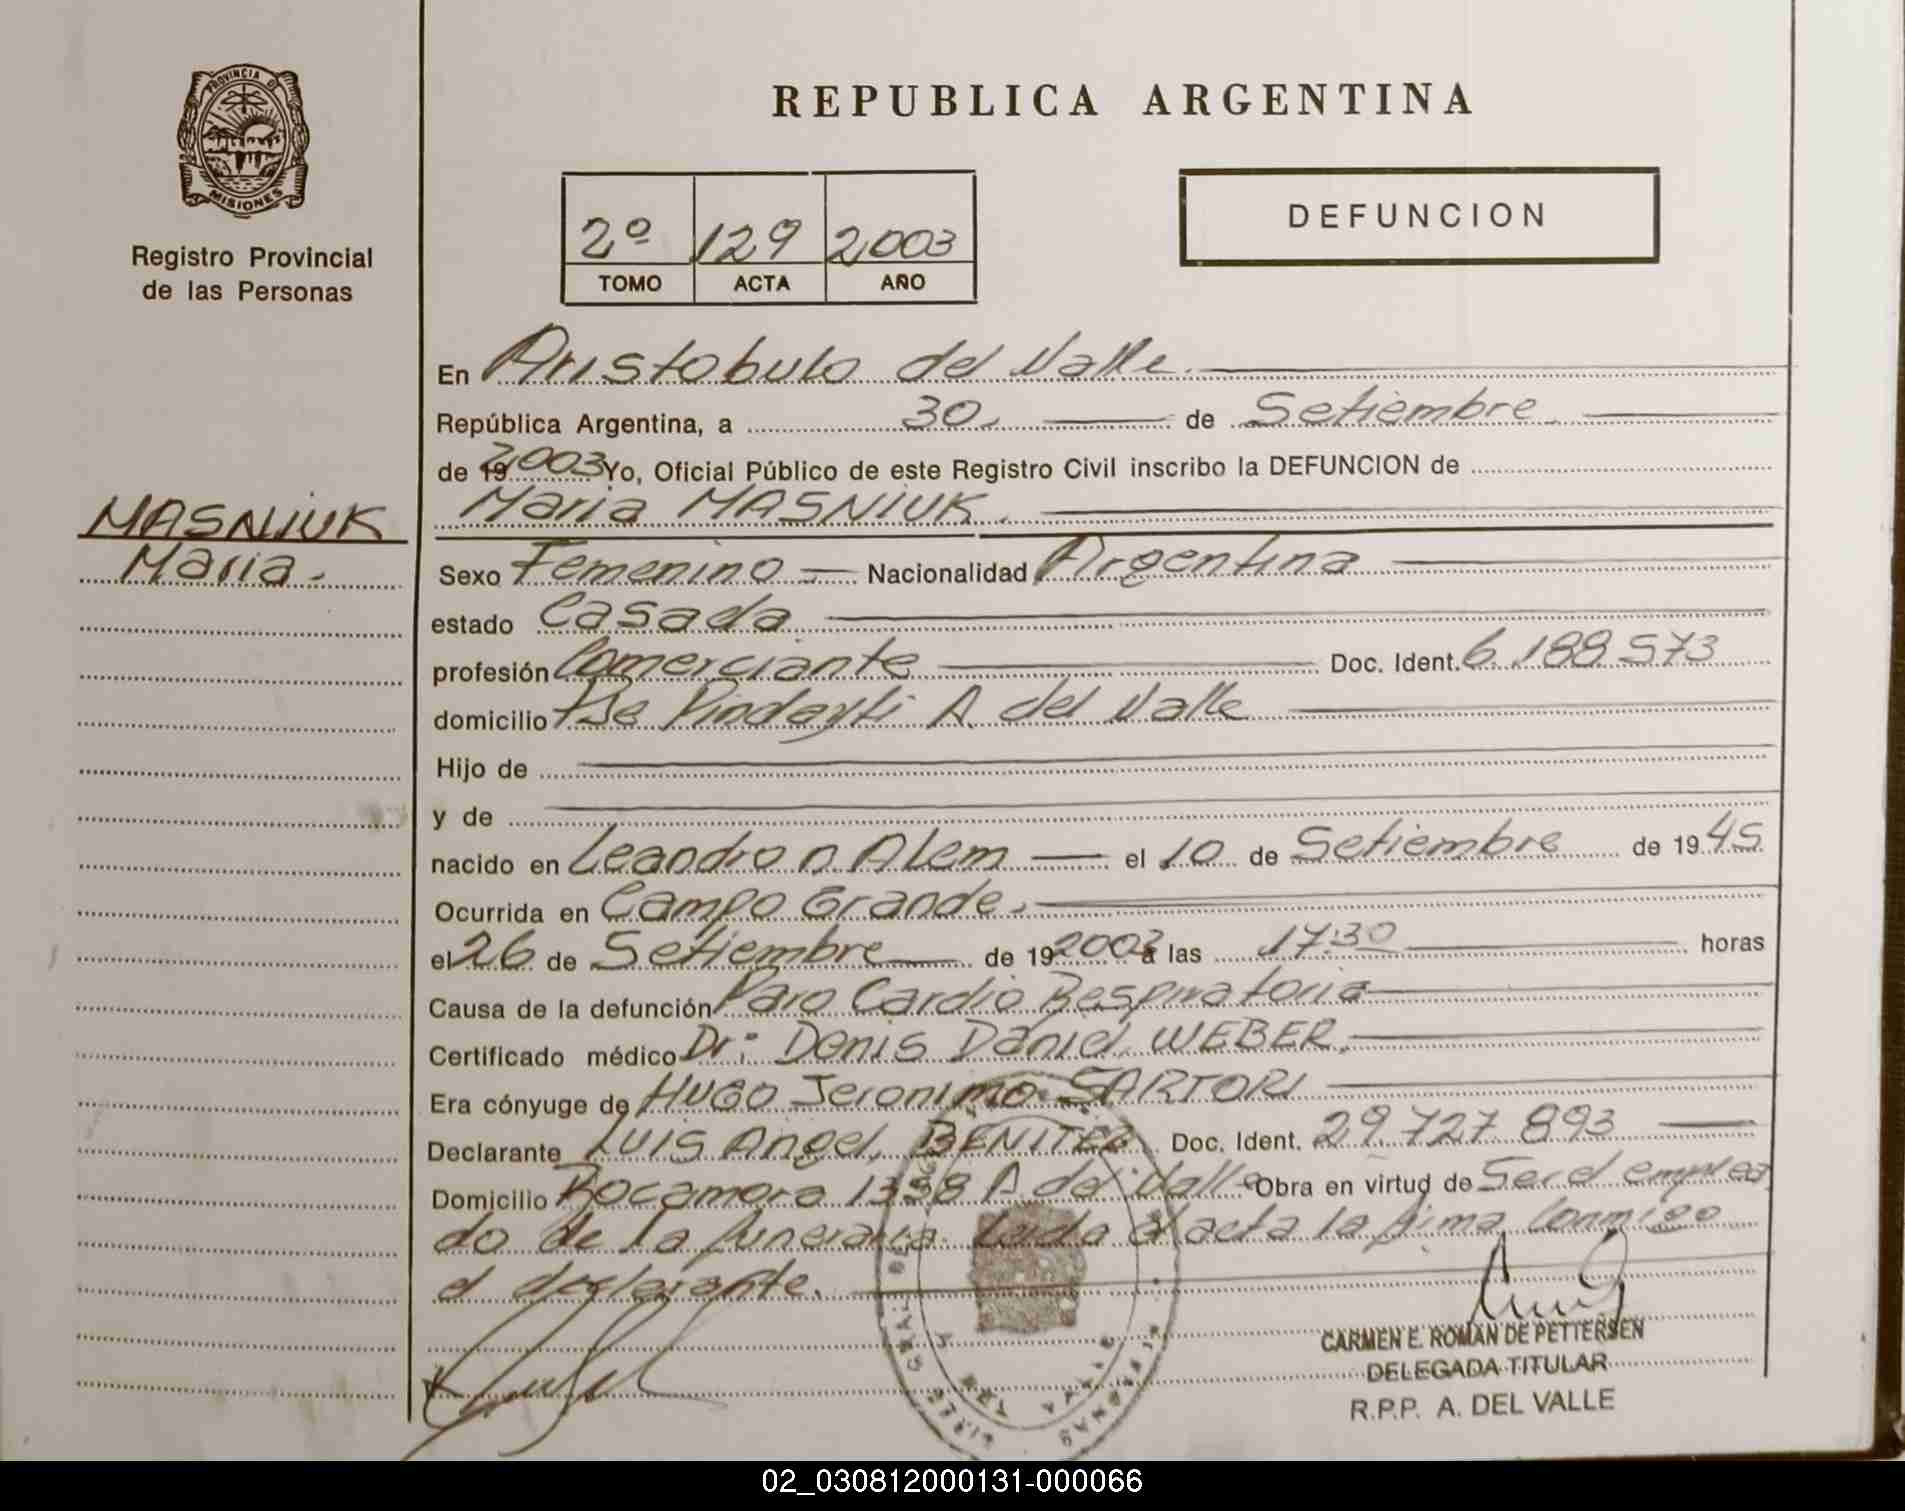 PROVINCIA D
MISIONES
Registro Provincial
de las Personas
REPUBLICA ARGENTINA
2º 129 2003
TOMO ACTA AÑO
DEFUNCION
En Aristobulo del Valle
República Argentina, a 30 de Setiembre
de 19 2003 Yo, Oficial Público de este Registro Civil inscribo la DEFUNCION de
MASNIUK
Maria MASNIUK
Maria
Sexo Femenino Nacionalidad Argentina
estado Casada
profesión Comerciante Doc. Ident. 6.188.573
domicilio Pindayti A. del Valle
Hijo de
y de
nacido en Leandro n Alem el 10 de Setiembre de 1945
Ocurrida en Campo Grande
el 26 de Setiembre de 19 2003 a las 17:30 horas
Causa de la defunción Paro Cardio Respiratorio
Certificado médico Dr: Denis Daniel WEBER
Era cónyuge de HUGO Jeronimo SARTORI
Declarante LUIS Angel BENITEZ Doc. Ident. 29.727.893
Domicilio Rocamora 1358 A. del Valle Obra en virtud de Ser el emplea
do de la funeraria. Leida el acta la firma Conmigo
el declarante.
CARMEN E. ROMAN DE PETTERSEN
DELEGADA TITULAR
R.P.P. A. DEL VALLE
02_030812000131-000066